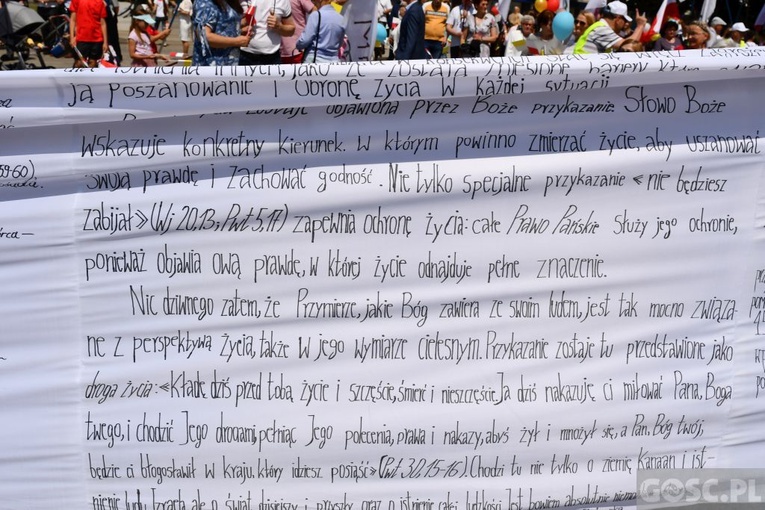 ją poszanowanie i obronę życia w każdej sytuacji
objawiona przez Boże przykazanie. Słowo Boże
wskazuje konkretny kierunek, w którym powinno zmierzać życie, aby uszanować
swoją prawdę i zachować godność. Nie tylko specjalne przykazanie «nie będziesz
zabijał» (Wj 20,13; Pwt 5,17) zapewnia ochronę życia: całe Prawo Pańskie służy jego ochronie,
ponieważ objawia ową prawdę, w której życie odnajduje pełne znaczenie.
Nic dziwnego zatem, że Przymierze, jakie Bóg zawiera ze swoim ludem, jest tak mocno związa-
ne z perspektywą życia, także w jego wymiarze cielesnym. Przykazanie zostaje tu przedstawione jako
droga życia: «Kładę dziś przed tobą życie i szczęście, śmierć i nieszczęście. Ja dziś nakazuję ci miłować Pana, Boga
twego, i chodzić Jego drogami, pełniąc Jego polecenia, prawa i nakazy, abyś żył i mnożył się, a Pan, Bóg twój,
będzie ci błogosławił w kraju, który idziesz posiąść» (Pwt 30,15-16). Chodzi tu nie tylko o ziemię Kanaan i ist-
nienie ludu Izraela, ale o świat dzisiejszy i przyszły oraz o istnienie całej ludzkości. Jest bowiem absolutnie niemo-
GOSC.PL